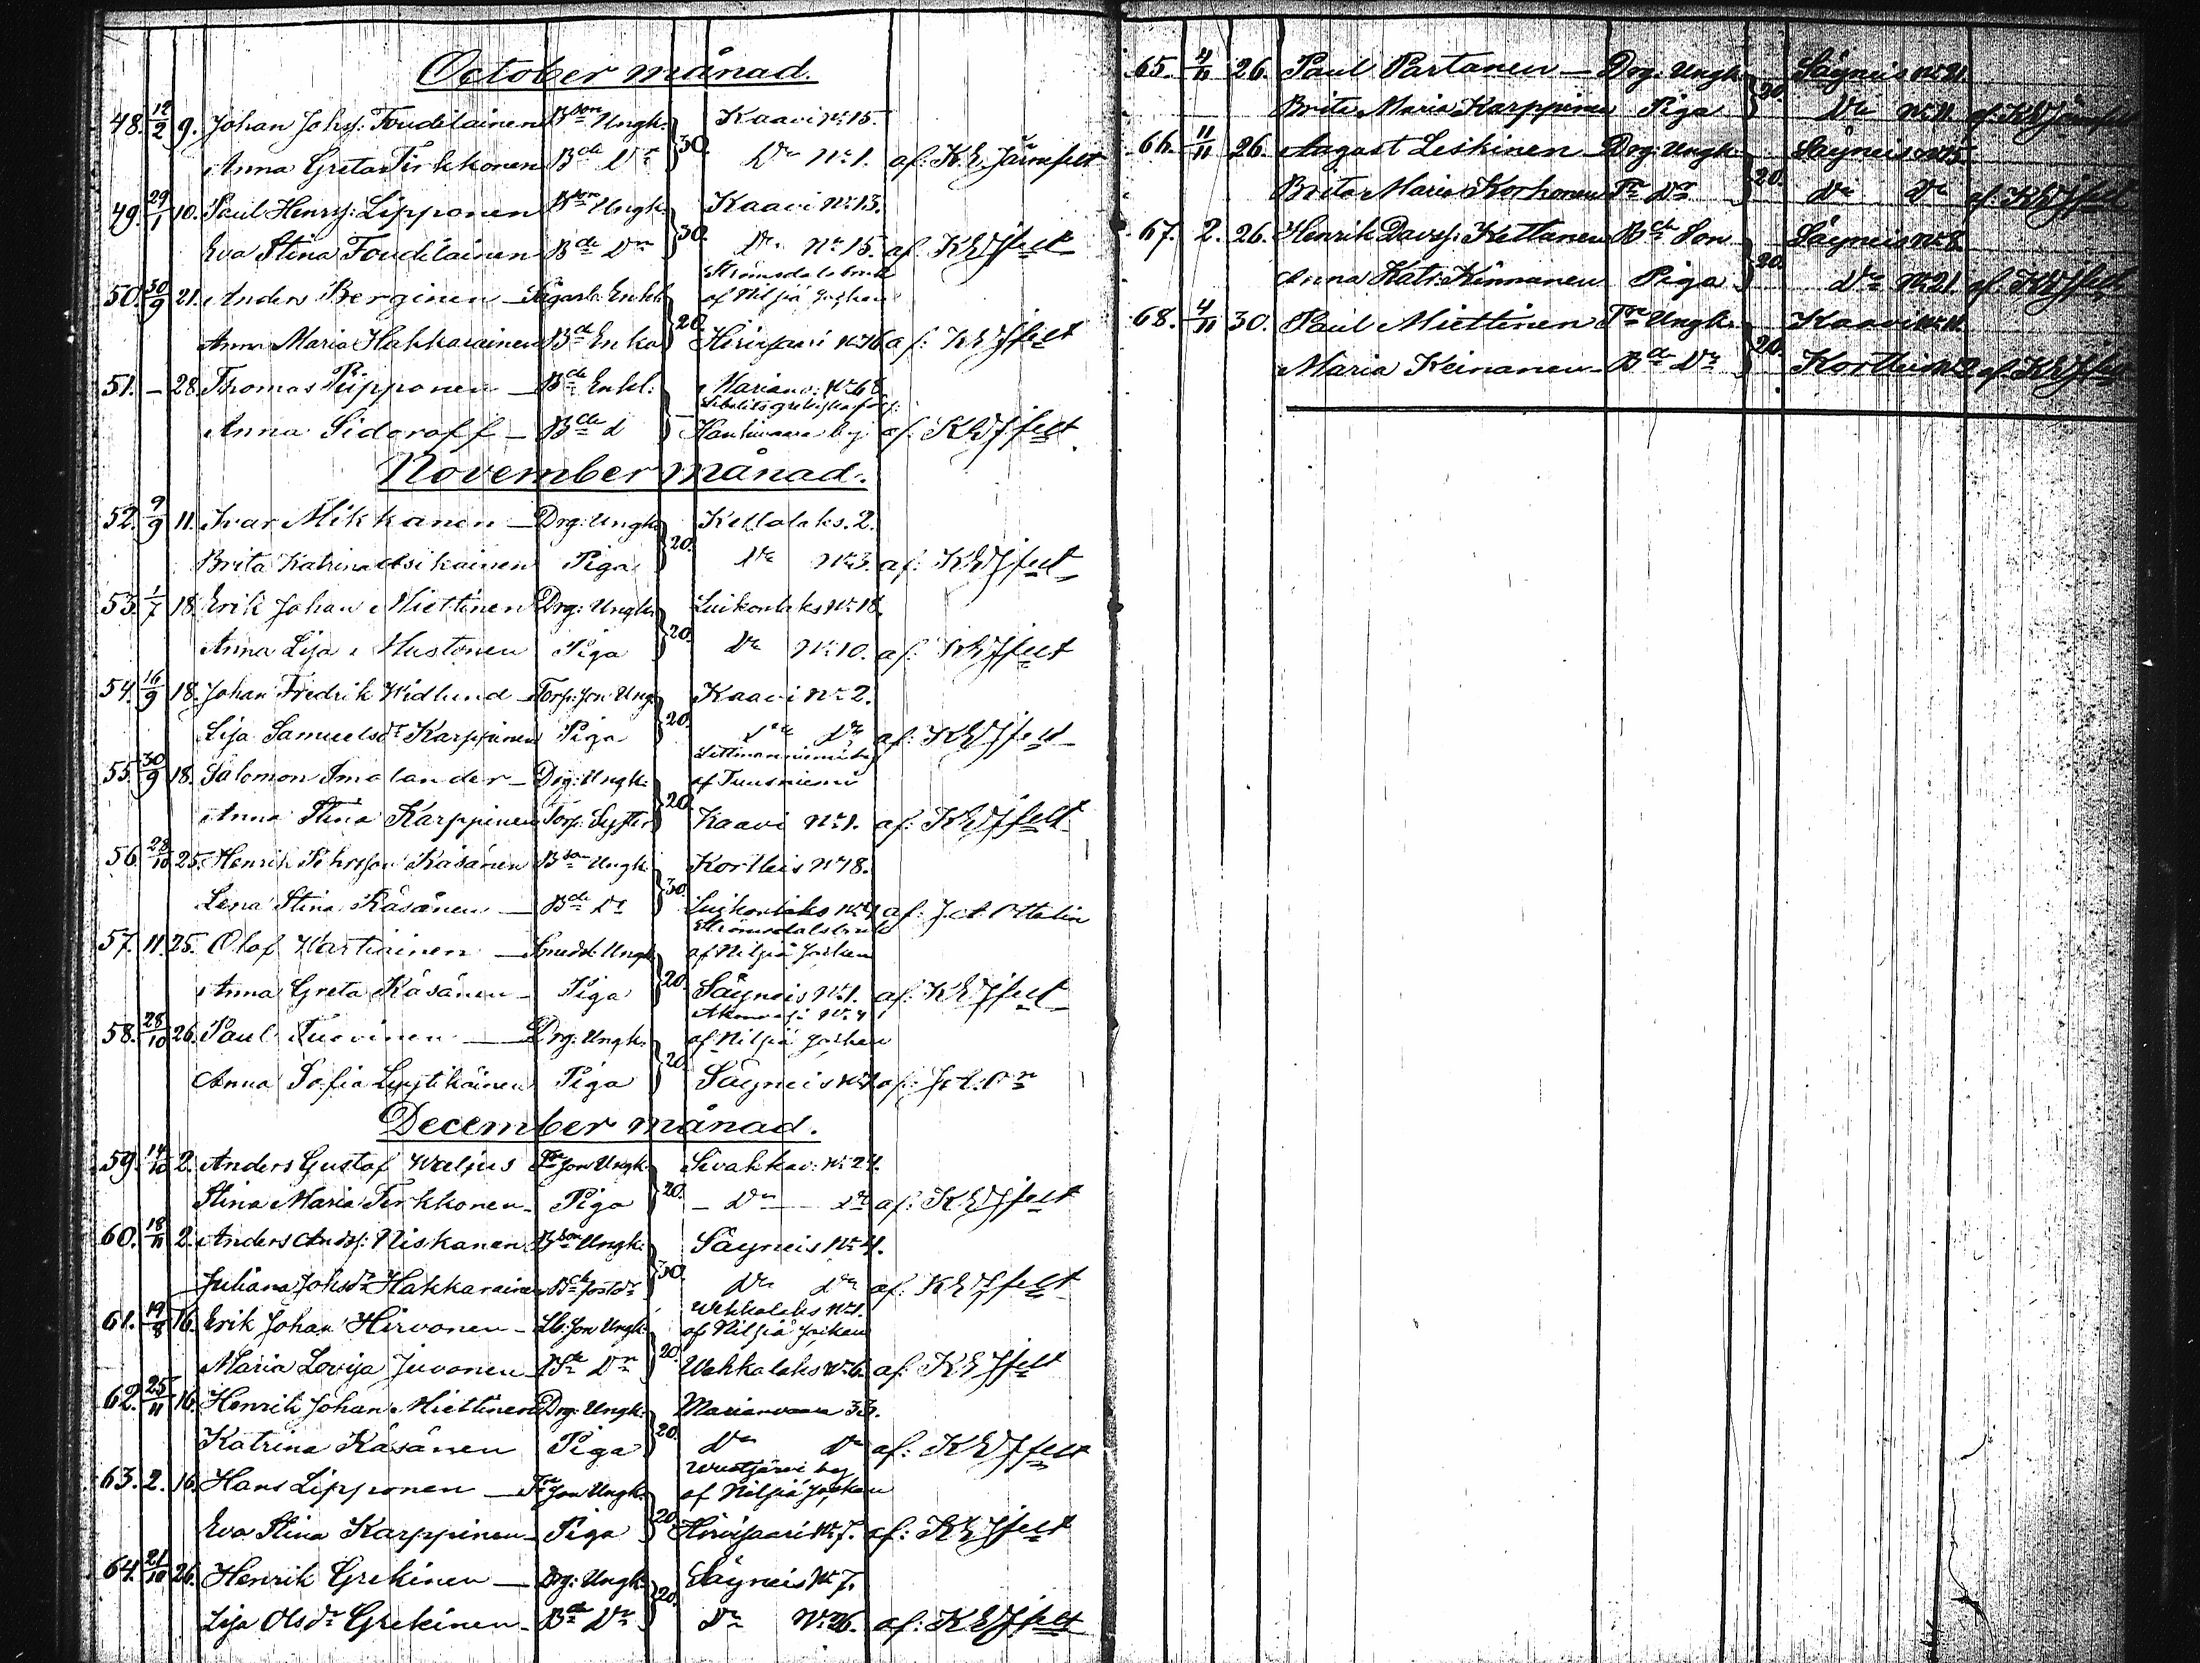 October månad.
48. 12/2 9. Johan Johsf: Toudilainen Bson Ungk. Kaavi No 15.
Anna Greta Tirkkonen Bde Dr 30. Do No 1. af: K. E. Järnefelt
49. 29/1 10. Paul Henrsf: Lipponen Bson Ungk. Kaavi No 13.
Eva Stina Toudilainen Bde Dr 30. Do No 15. af: K E Jfelt
50. 30/9 21. Anders Berginen Enkl. Strömsdals bruk af Nilsiä
Anna Maria Hakkarainen Bde Enka 20. Hirvisaari No 16 af: K E Jfelt
51. – 28. Thomas Piipponen – Bde Enkl. Marianv: No 68
Anna Sidoroff – Bde by af: K E Jfelt
November månad.
52. 9/9 11. Ivar Mikkanen – Drg: Ungk. Kettolaks. 2.
Brita Katrina Asikainen Piga 20. Do No 3. af: K E Jfelt
53. 1/7 18. Erik Johan Miettinen Drg: Ungk. Luikonlaks No 18.
Anna Lisa Mustonen Piga 20. Do No 10. af: K E Jfelt
54. 16/9 18. Johan Fredrik Widlund Torp: son Ung. Kaavi No 2.
Lisa Samuelsdr Karppinen Piga 20. Do Do af: K E Jfelt
55. 30/9 18. Salomon Smalander – Drg: Ungk. af Tuusniemi
Anna Stina Karppinen Torp. Syster 20. Kaavi No 1. af: K E Jfelt
56. 28/10 25. Henrik Pehrsson Räsänen Bson Ungk. Kortteis No 18.
Lena Stina Räsänen – Bde Dr 30. Luikonlaks af: J. A. Ottelin
57. 11. 25. Olof Wartiainen – Smedsl: Ungk. Strömsdals bruk af Nilsiä Socken
Anna Greta Räsänen – Piga 20. Säyneis No 1. af: K E Jfelt
58. 28/10 26. Paul Tuovinen – Drg: Ungk. af Nilsiä Socken
Anna Sofia Lyytikäinen Piga 20. Säyneis af: J. A. On
December månad.
59. 14/10 2. Anders Gustaf Waljus son Ungk. Sivakkav: No 24.
Stina Maria Tirkkonen – Piga 20. – Do – Do af: K E Jfelt
60. 18/11 2. Anders Andsf: Niskanen Bson Ungk. Säyneis No 4.
Juliana Johsdr Hakkarainen 30. Do Do af: K E Jfelt
61. 19/8 16. Erik Johan Hirvonen – Lb: son Ungk. Wehkalaks No 1. af Nilsiä Socken
Maria Lovisa Juvonen Bde Dr 20. Wehkalaks No 6. af: K E Jfelt
62. 25/11 16. Henrik Johan Miettinen Drg: Ungk. Marianvaara 33.
Katrina Räsänen Piga 20. Do Do af: K E Jfelt
63. 2. 16. Hans Lipponen – son Ungk. Wuotjärvi by af Nilsiä Socken
Eva Stina Karppinen – Piga 20. Hirvisaari No 7. af: K E Jfelt
64. 21/10 26. Henrik Grekinen – Drg: Ungk. Säyneis No 7.
Lisa Olsdr Grekinen – Bde Dr 20. Do No 26. af: K E Jfelt
65. 4/11 26. Paul Partanen – Drg: Ungk. Säyneis No 21.
Brita Maria Karppinen Piga 20. Do No 11. af K E Järnefelt
66. 11/11 26. August Leskinen – Drg: Ungk. Säyneis No 15.
Brita Maria Korhonen Dr 20. Do Do af: K E Jfelt
67. 2. 26. Henrik Davsf: Kettanen Bde Son Säyneis No 8.
Anna Katr: Kinnanen Piga 20. Do No 21. af K E Jfelt
68. 4/11 30. Paul Miettinen Ungk. Kaavi No 11.
Maria Keinanen – Bde Dr 20. Kortteis af: K E Jfelt